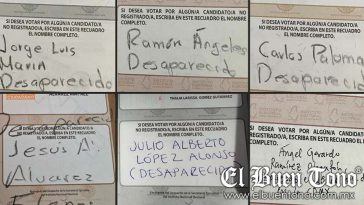 SI DESEA VOTAR POR ALGÚN/A CANDIDATO/A
NO REGISTRADO/A, ESCRIBA EN ESTE RECUADRO
EL NOMBRE COMPLETO.
Jorge Luis
Marin
Desaparecido
SI DESEA VOTAR POR ALGÚN/A CANDIDATO/A
NO REGISTRADO/A, ESCRIBA EN ESTE RECUADRO
EL NOMBRE COMPLETO.
Ramón Ángeles
Desaparecido
SI DESEA VOTAR POR ALGÚN/A CANDIDATO/A
NO REGISTRADO/A, ESCRIBA EN ESTE RECUADRO
EL NOMBRE COMPLETO.
Carlos Palomar
Desaparecido
SI DESEA VOTAR POR ALGÚN/A CANDIDATO/A
NO REGISTRADO/A, ESCRIBA EN ESTE RECUADRO
EL NOMBRE COMPLETO.
Jesús A.
Alvarez
SI DESEA VOTAR POR ALGÚN/A CANDIDATO/A
NO REGISTRADO/A, ESCRIBA EN ESTE RECUADRO
EL NOMBRE COMPLETO.
JULIO ALBERTO
LÓPEZ ALONSO
(DESAPARECIDO)
SI DESEA VOTAR POR ALGÚN/A CANDIDATO/A
NO REGISTRADO/A, ESCRIBA EN ESTE RECUADRO
EL NOMBRE COMPLETO.
Angel Gerardo
Ramírez
El Buen Tono
www.elbuentono.com.mx